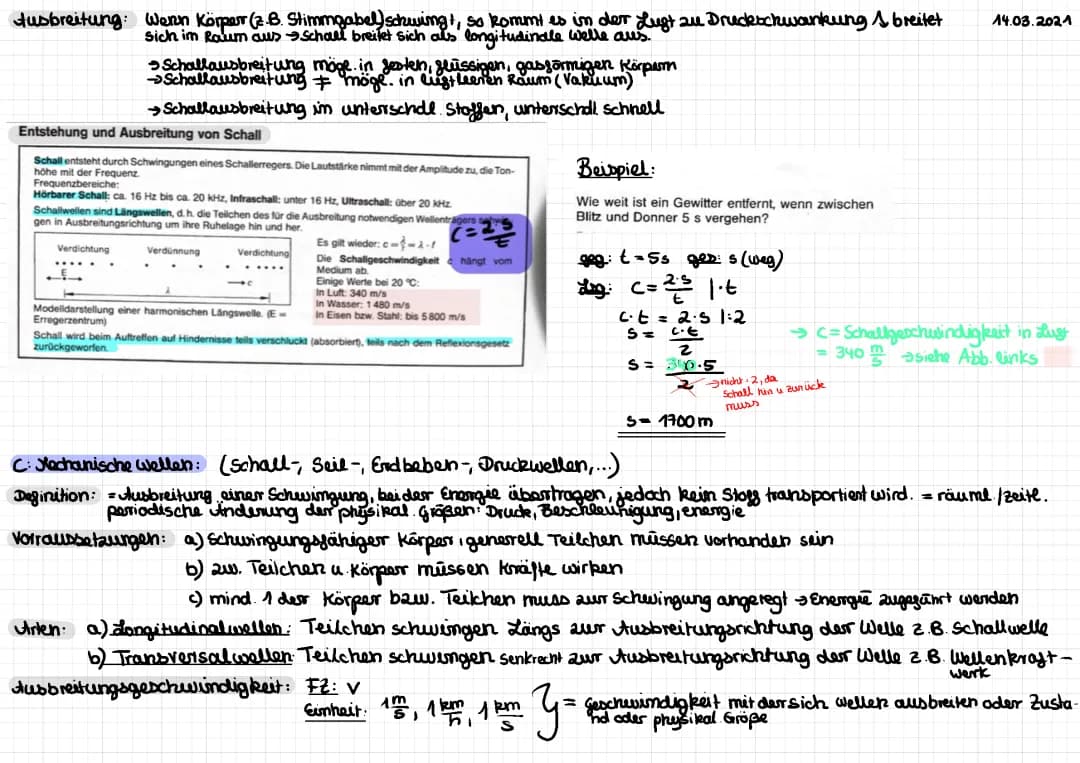 Ausbreitung: Wenn Körper (z.B. Stimmgabel) schwingt, so kommt es in der Luft zu Druckschwankung & breitet 14.03.2021
sich im Raum aus → Schall breitet sich als longitudinale Welle aus.
→ Schallausbreitung mögl. in festen, flüssigen, gasförmigen Körpern
→ Schallausbreitung ≠ mögl. in luftleeren Raum (Vakuum)
→ Schallausbreitung im unterschdl. Stoffen, unterschdl. schnell
Entstehung und Ausbreitung von Schall
Schall entsteht durch Schwingungen eines Schallerregers. Die Lautstärke nimmt mit der Amplitude zu, die Ton-
höhe mit der Frequenz.
Frequenzbereiche:
Hörbarer Schall: ca. 16 Hz bis ca. 20 kHz, Infraschall: unter 16 Hz, Ultraschall: über 20 kHz.
Schallwellen sind Längswellen, d. h. die Teilchen des für die Ausbreitung notwendigen Wellenträgers
gen in Ausbreitungsrichtung um ihre Ruhelage hin und her.
c = 2·s/t
Verdichtung Verdünnung Verdichtung
E
λ
c
Modelldarstellung einer harmonischen Längswelle. (E =
Erregerzentrum)
Es gilt wieder: c = λ/T = λ · f
Die Schallgeschwindigkeit c hängt vom
Medium ab.
Einige Werte bei 20 °C:
In Luft: 340 m/s
In Wasser: 1 480 m/s
In Eisen bzw. Stahl: bis 5 800 m/s
Schall wird beim Auftreffen auf Hindernisse teils verschluckt (absorbiert), teils nach dem Reflexionsgesetz
zurückgeworfen.
Beispiel:
Wie weit ist ein Gewitter entfernt, wenn zwischen
Blitz und Donner 5 s vergehen?
geg: t = 5s ges: s (weg)
Lsg: c = 2·s/t |·t
c·t = 2·s |:2
s = c·t/2
s = 340·5/2
→ nicht :2, da
Schall hin u zurück
muss
s = 1700 m
→ c = Schallgeschwindigkeit in Luft
= 340 m/s → siehe Abb. links
C: Mechanische Wellen: (Schall-, Seil-, Erdbeben-, Druckwellen,...)
Definition: = Ausbreitung einer Schwingung, bei der Energie übertragen, jedoch kein Stoff transportiert wird. = räuml. /zeitl.
periodische Änderung der physikal. Größen: Druck, Beschleunigung, energie
Vorraussetzungen: a) Schwingungsfähiger Körper, generell Teilchen müssen vorhanden sein
b) zw. Teilchen u. Körper müssen kräfte wirken
c) mind. 1 der Körper bzw. Teilchen muss zur Schwingung angeregt → Energie zugeführt werden
Arten: a) Longitudinalwellen: Teilchen schwingen Längs zur Ausbreitungsrichtung der Welle z.B. Schallwelle
b) Transversalwellen: Teilchen schwingen senkrecht zur Ausbreitungsrichtung der Welle z.B. Wellenkraft-
werk
Ausbreitungsgeschwindigkeit: FZ: v
Einheit: 1 m/s, 1 km/h, 1 km/s } = Geschwindigkeit mit der sich wellen ausbreiten oder Zusta-
nd oder physikal. Größe